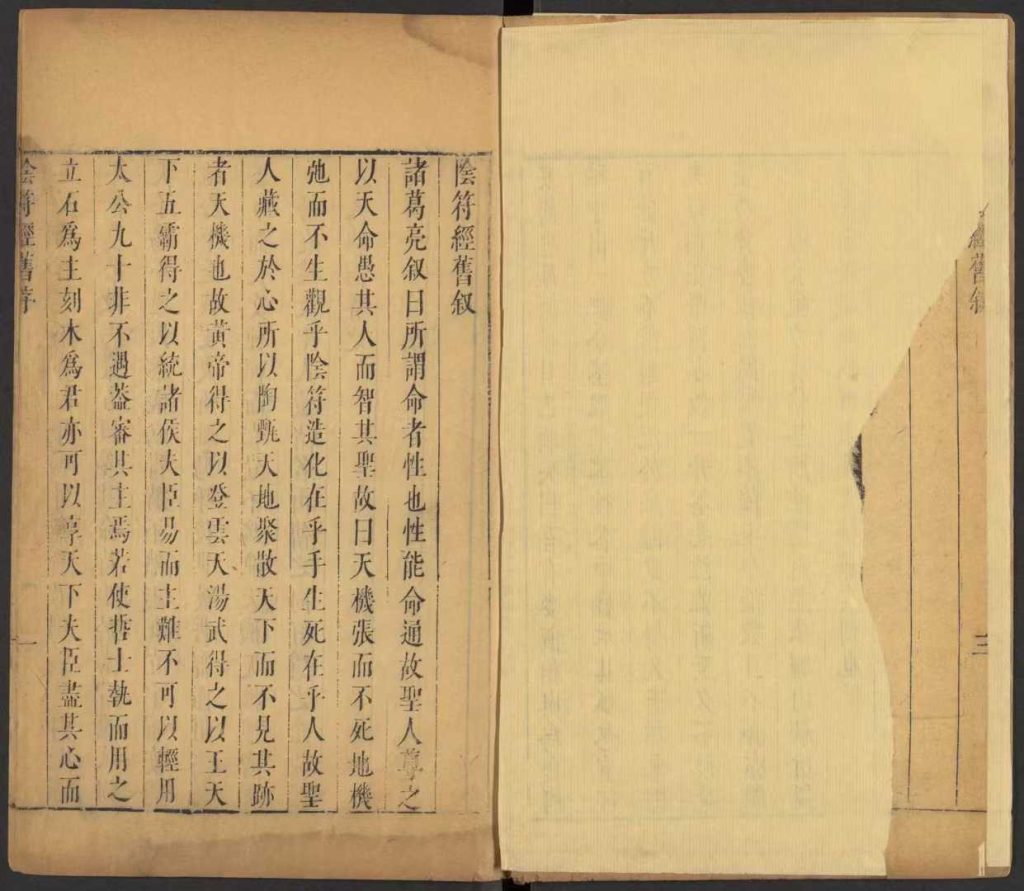 經舊叙
三
陰符經舊叙
諸葛亮叙曰所謂命者性也性能命通故聖人尊之
以天命愚其人而智其聖故曰天機張而不死地機
弛而不生觀乎陰符造化在乎手生死在乎人故聖
人藏之於心所以陶甄天地聚散天下而不見其跡
者天機也故黃帝得之以登雲天湯武得之以王天
下五霸得之以統諸侯夫臣易而主難不可以輕用
太公九十非不遇葢審其主焉若使哲士執而用之
立石爲主刻木爲君亦可以享天下夫臣盡其心而
陰符經舊序
一